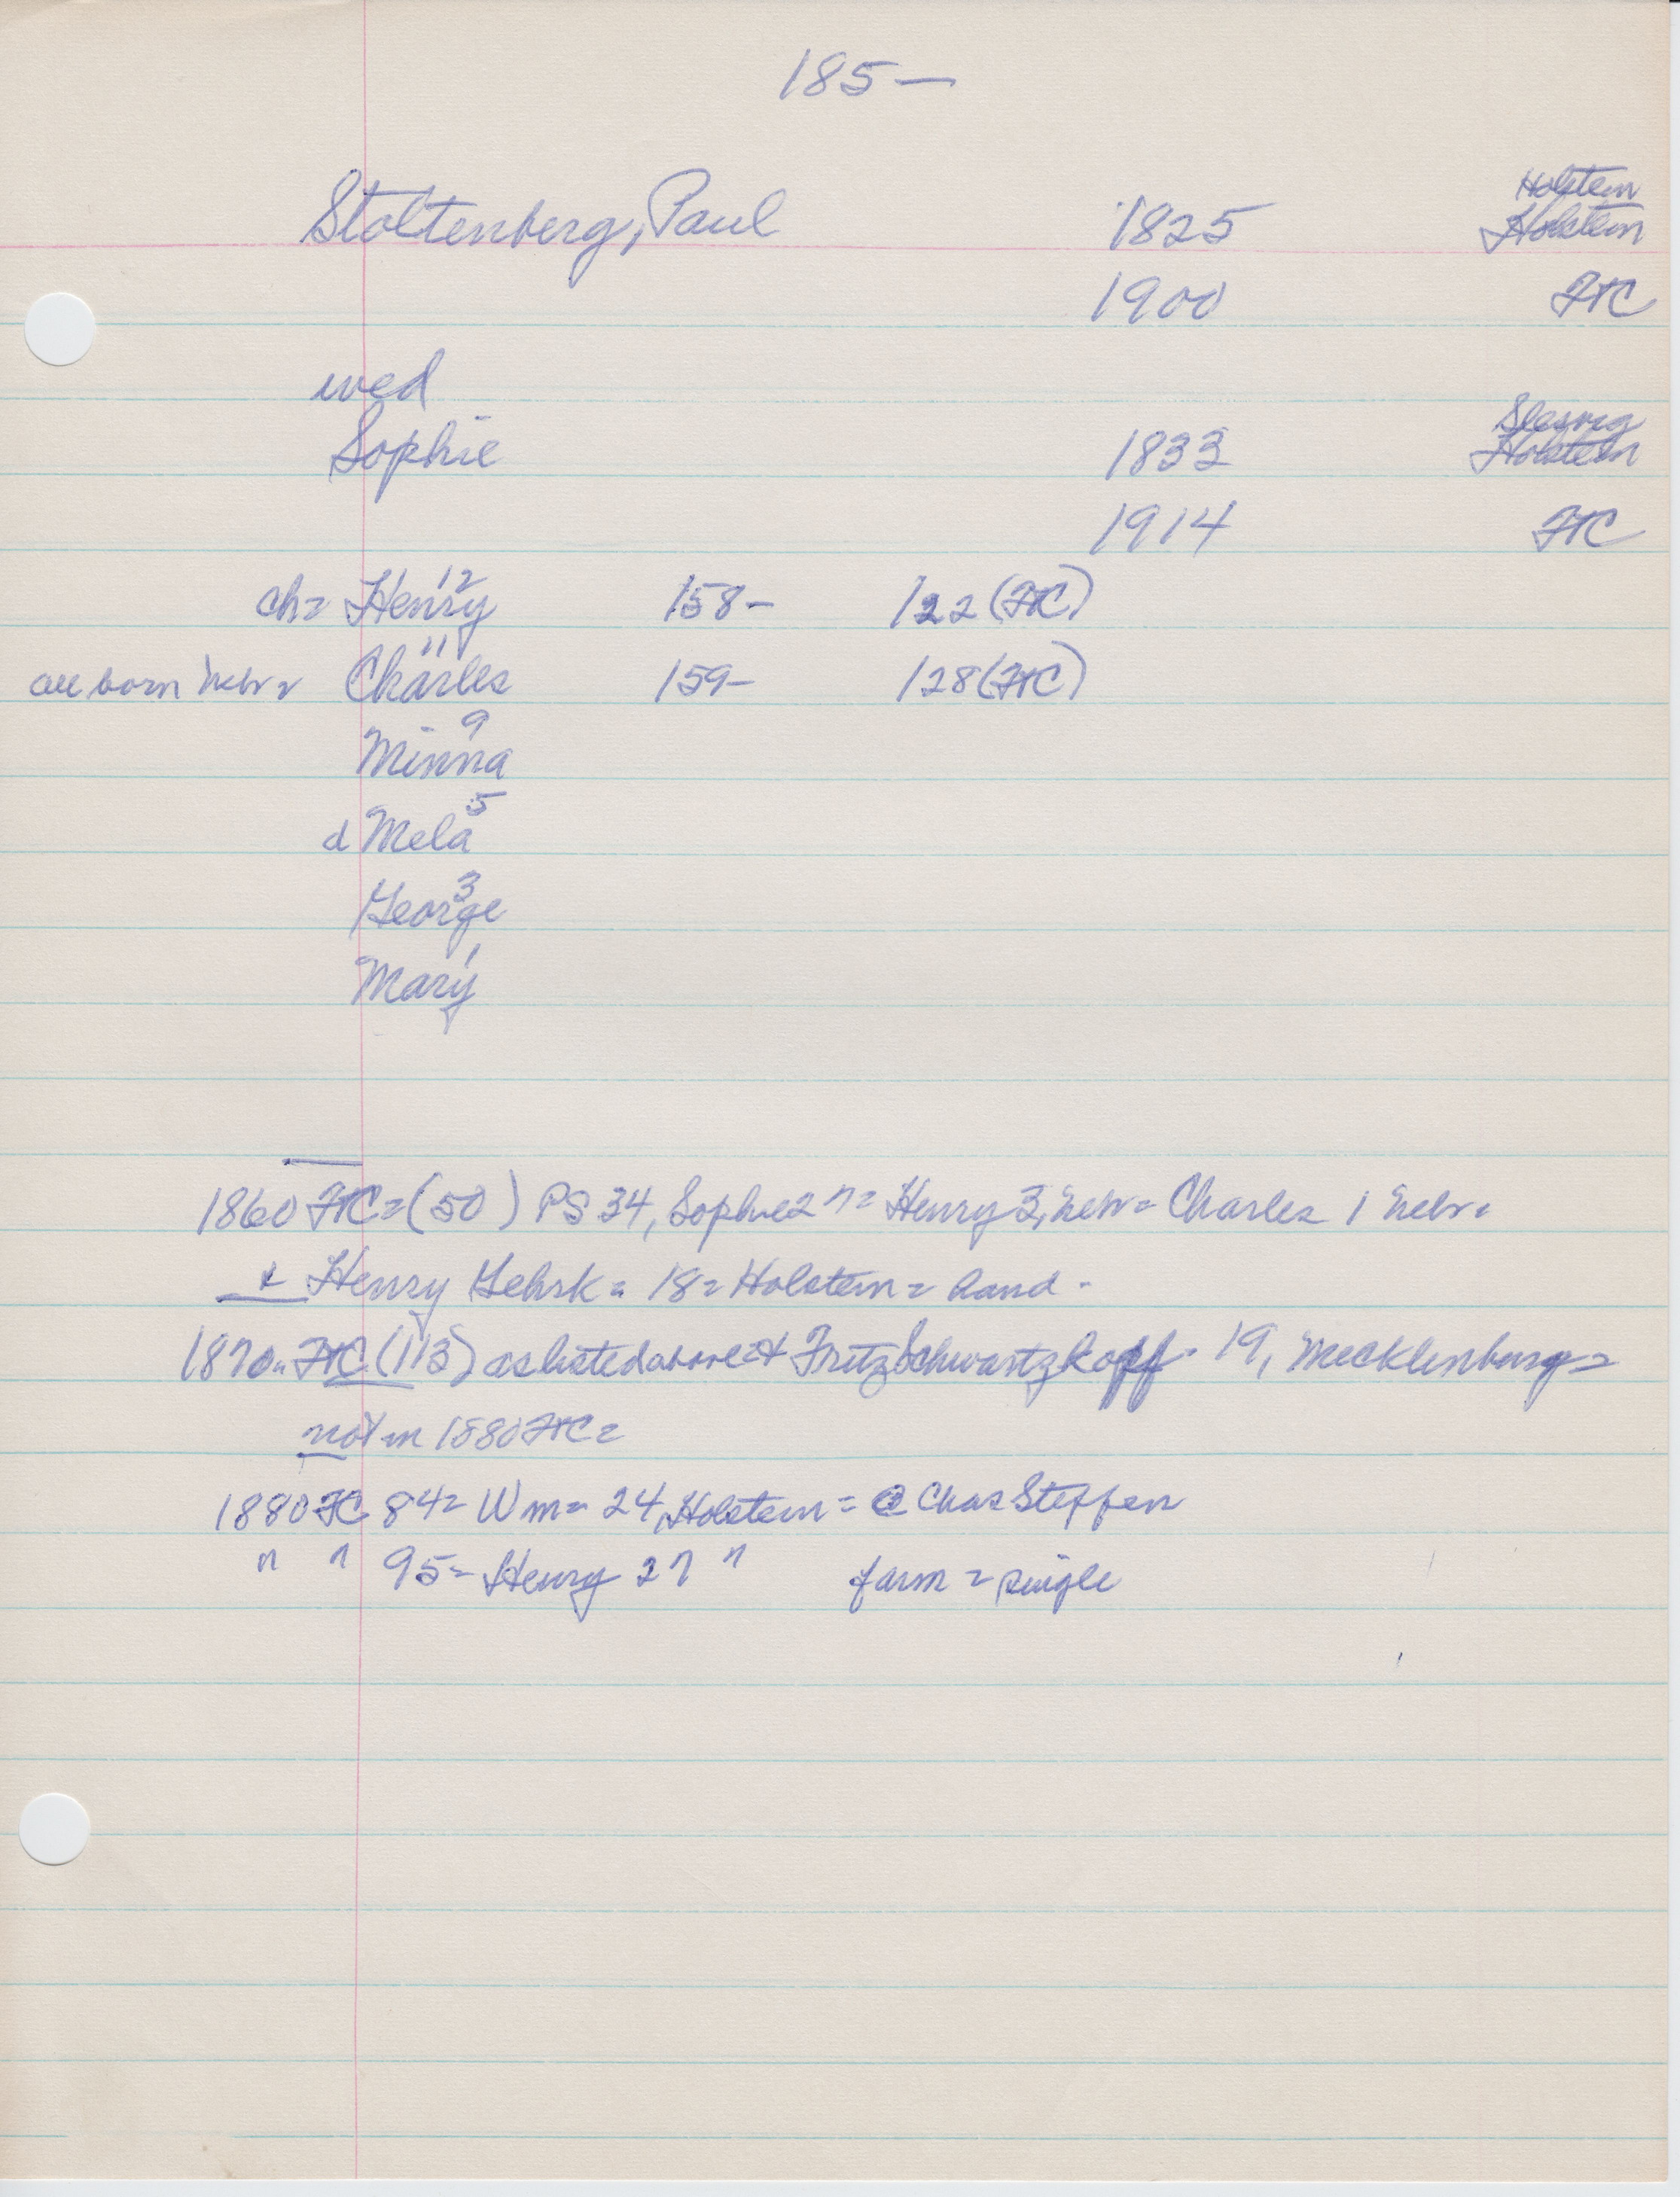 185—
Holstein
Stoltenberg, Paul 1825 Holstein
1900 FTC
wed
Slesvig
Sophie 1833 Holstein
1914 FTC
12
ch= Henry 158- 122 (FTC)
11
all born Nebr= Charles 159- 128 (FTC)
9
Minna
5
d Mela
3
George
1
Mary
1860 FTC=(50) PS 34, Sophie 27= Henry 3, Nebr= Charles 1 Nebr=
+ Henry Gehrk= 18= Holstein= hand-
1870= FTC (113) as listed above=+ Fritz Schwartzkopff- 19, Mecklenburg=
not in 1880 FTC=
1880 FC 84= Wm= 24, Holstein= @ Chas Steffen
" " 95= Henry 27 " farm = single